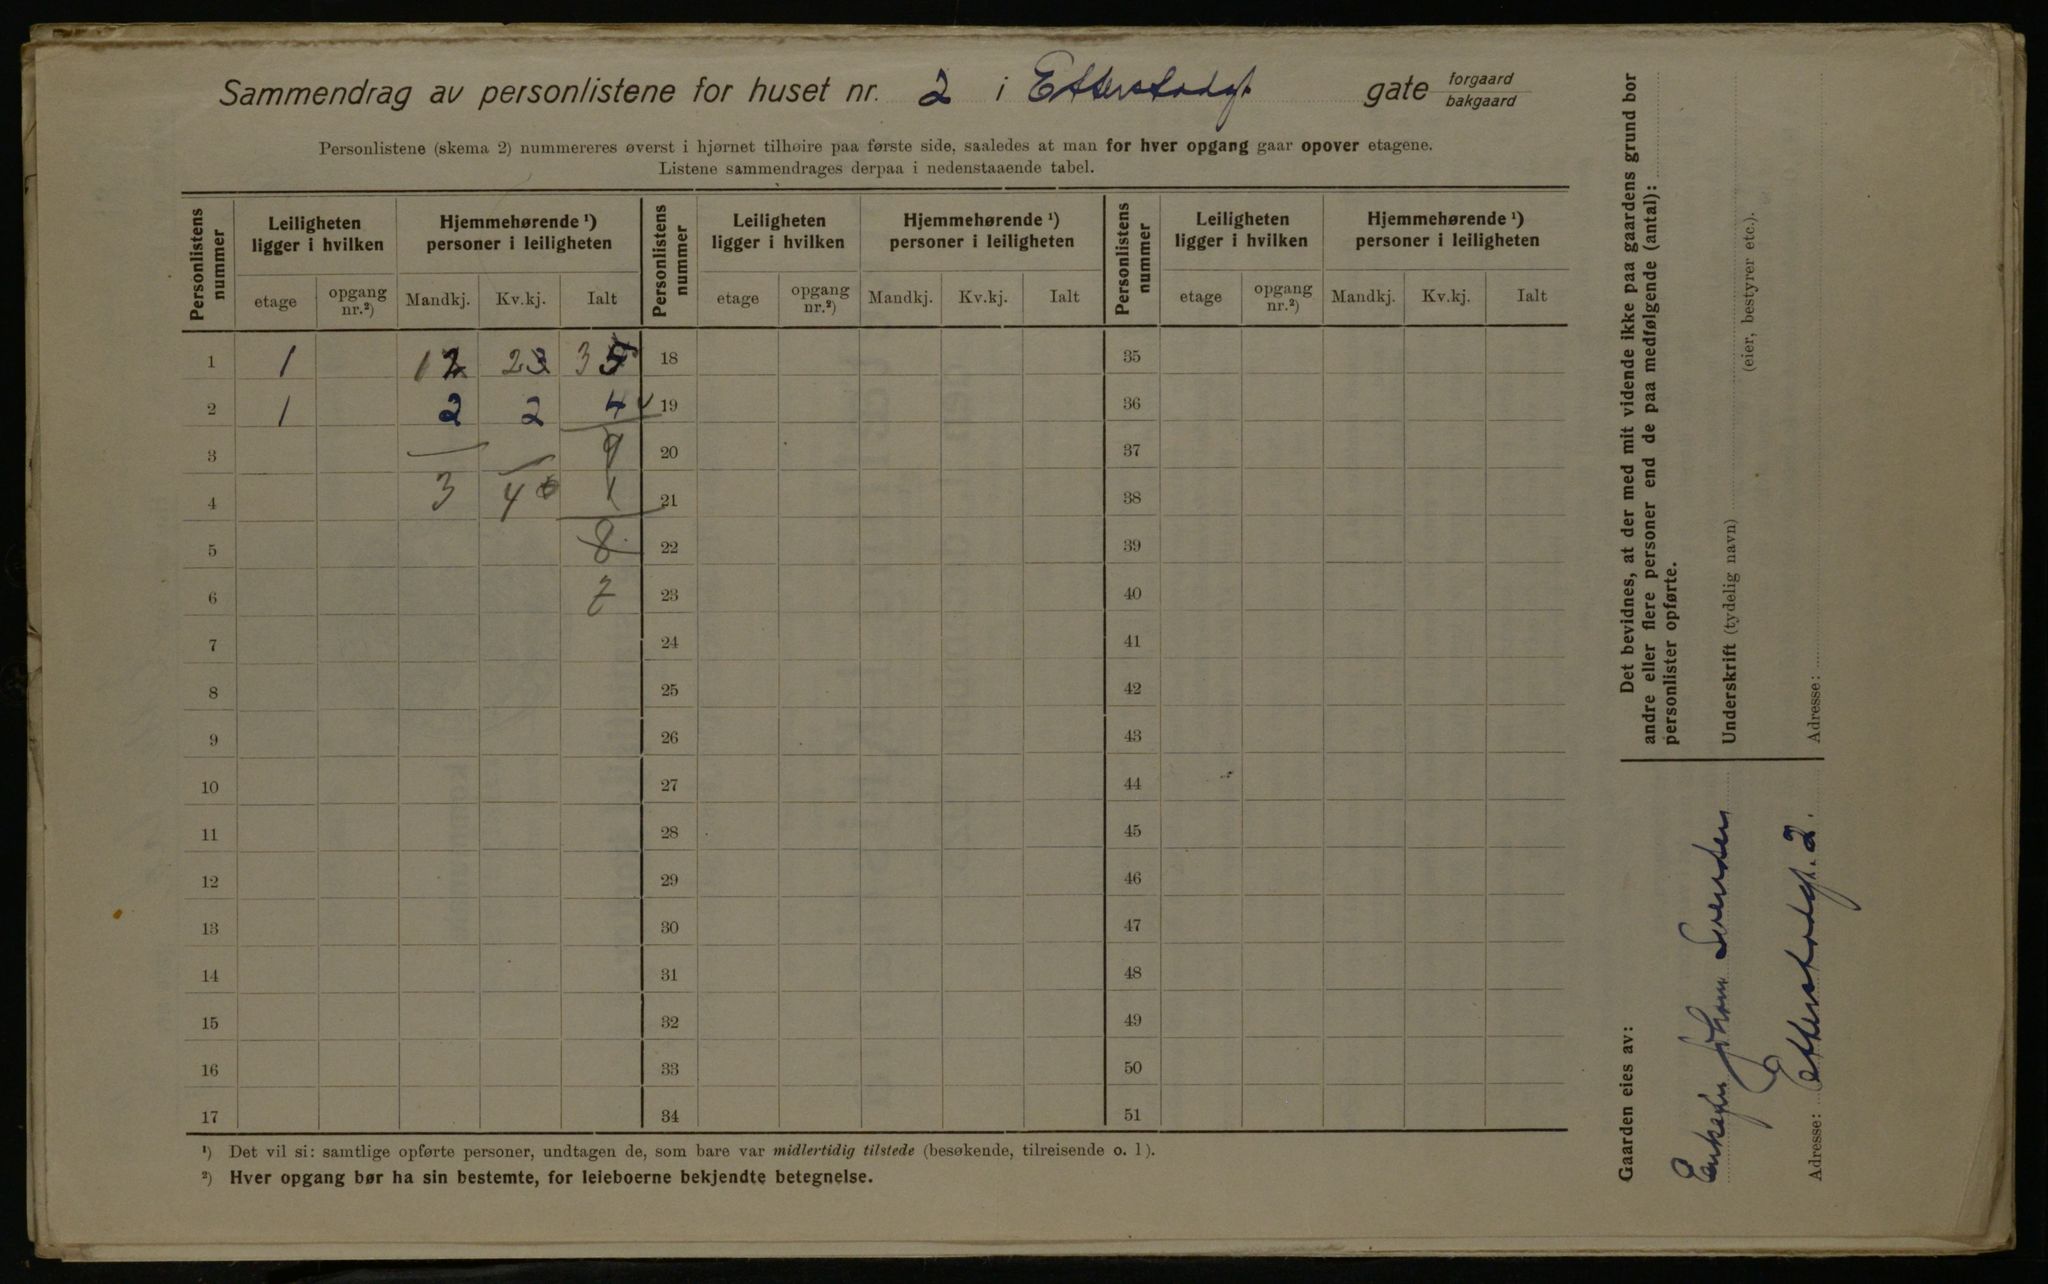 Sammendrag av personlistene for huset nr. 2 i Etterstadgt. gate forgaard bakgaard
Personlistene (skema 2) nummereres øverst i hjørnet tilhøire paa første side, saaledes at man for hver opgang gaar opover etagene.
Listene sammendrages derpaa i nedenstaaende tabel.
Personlistens nummer
Leiligheten ligger i hvilken
Hjemmehørende ¹) personer i leiligheten
Personlistens nummer
Leiligheten ligger i hvilken
Hjemmehørende ¹) personer i leiligheten
Personlistens nummer
Leiligheten ligger i hvilken
Hjemmehørende ¹) personer i leiligheten
etage opgang nr.²) Mandkj. Kv.kj. Ialt etage opgang nr.²) Mandkj. Kv.kj. Ialt etage opgang nr.²) Mandkj. Kv.kj. Ialt
1 1 1 2 2 3 3 5 18 35
2 1 2 2 4 19 36
3 20 37
4 3 4 1 21 38
5 8 22 39
6 7 23 40
7 24 41
8 25 42
9 26 43
10 27 44
11 28 45
12 29 46
13 30 47
14 31 48
15 32 49
16 33 50
17 34 51
¹) Det vil si: samtlige opførte personer, undtagen de, som bare var midlertidig tilstede (besøkende, tilreisende o. l).
²) Hver opgang bør ha sin bestemte, for leieboerne bekjendte betegnelse.
Det bevidnes, at der med mit vidende ikke paa gaardens grund bor
andre eller flere personer end de paa medfølgende (antal):
personlister opførte.
Underskrift (tydelig navn)
(eier, bestyrer etc.).
Adresse:
Gaarden eies av:
Johan Svendsen
Adresse: Etterstadgt. 2.